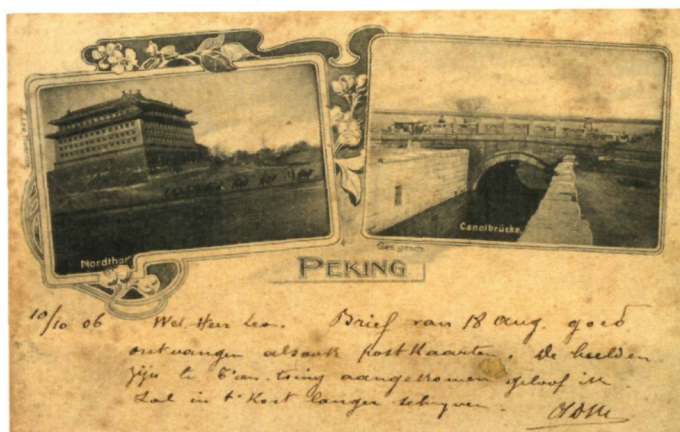 Nordthor
Canalbrücke.
Ges. gesch.
PEKING
10/10 06 Wel. Heer Leon. Brief van 18 Aug. goed
ontvangen alsook postkaarten. De beelden
zijn te T'ien-tsing aangekomen geloof ik
Zal in 't kort langer schrijven.